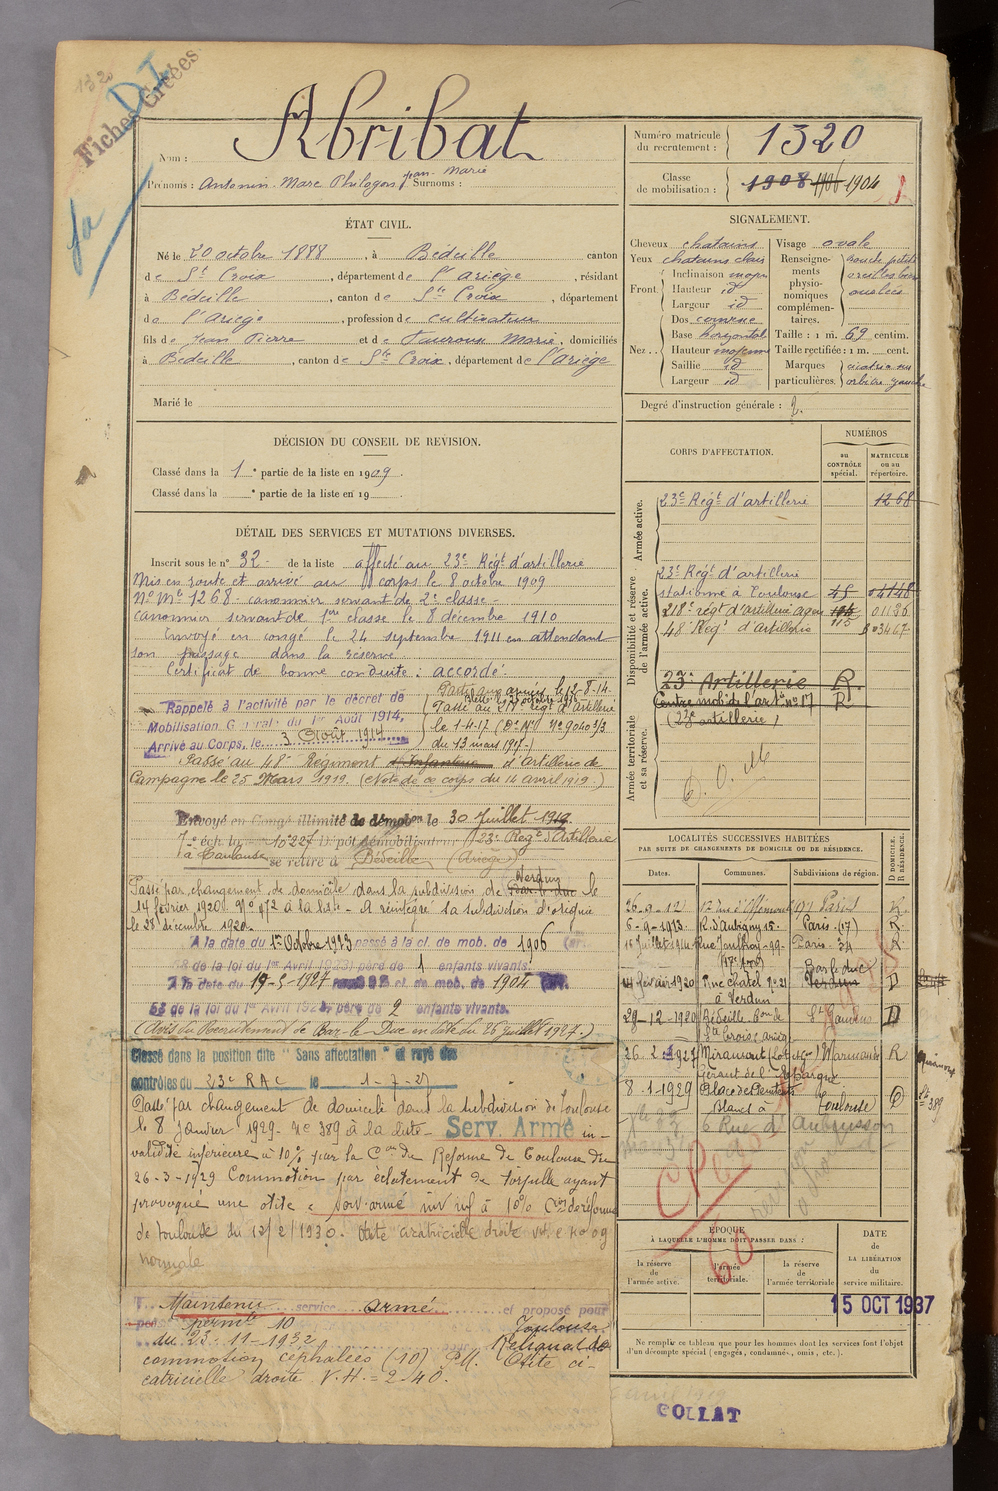 1320
Fiches Créées
Nom : Abribat
Prénoms : Antonin Marc Philogon Jean Marie Surnoms :
Numéro matricule du recrutement : 1320
Classe de mobilisation : 1908 1906 1904
ÉTAT CIVIL.
Né le 20 octobre 1888, à Bédeille canton
de Ste Croix, département de l'Ariège, résidant
à Bédeille, canton de Ste Croix, département
de l'Ariège, profession de cultivateur
fils de Jean Pierre et de Tauroux Marie, domiciliés
à Bédeille, canton de Ste Croix, département de l'Ariège
Marié le
SIGNALEMENT.
Cheveux chatains
Yeux chatains clairs
Front Inclinaison moyen
Hauteur id
Largeur id
Nez Dos
Base horizontal
Hauteur moyenne
Saillie id
Largeur id
Visage ovale
Renseignements physionomiques complémentaires. bouche petite oreilles
Taille : 1 m. 69 centim.
Taille rectifiée : 1 m. cent.
Marques particulières. cicatrice
Degré d'instruction générale : 2.
DÉCISION DU CONSEIL DE REVISION.
Classé dans la 1e partie de la liste en 1909.
Classé dans la e partie de la liste en 19
DÉTAIL DES SERVICES ET MUTATIONS DIVERSES.
Inscrit sous le n° 32 de la liste affecté au 23e Régt d'artillerie
Mis en route et arrivé au corps le 8 octobre 1909
No Mle 1268. canonnier servant de 2e classe.
canonnier servant de 1re classe le 8 décembre 1910
Envoyé en congé le 24 septembre 1911 en attendant
son passage dans la réserve.
Certificat de bonne conduite : accordé.
Rappelé à l'activité par le décret de
Mobilisation Générale du 1er Août 1914,
Arrivé au Corps, le 3 Août 1914
Parti aux armées le 12-8-14.
Passé au régt d'artillerie
le 1-4-17 (Don Mle No 9040 3/3
du 13 mars 1917.)
Passé au 48e Régiment d'Infanterie d'Artillerie de
Campagne le 25 Mars 1919. (Note de ce corps du 14 avril 1919.)
Envoyé en Congé illimité de démobon le 30 Juillet 1919.
7e éch. 10227 Dépôt démobilisateur (23e Regt d'Artillerie
à Toulouse se retire à Bédeille (Ariège)
Passé par changement de domicile dans la subdivision de Bar-le-duc Verdun le
14 février 1920. No 472 à la liste - A réintégré sa subdivision d'origine
le 28 décembre 1920.
A la date du 1er Octobre 1923 passé à la cl. de mob. de 1906 (art.
58 de la loi du 1er Avril 1923) père de 1 enfants vivants.
A la date du 19-5-1927 passé à la cl. de mob. de 1904 (art.
58 de la loi du 1er Avril 1923, père de 2 enfants vivants.
(Avis du Recrutement de Bar-le-Duc en date du 26 juillet 1927.)
Classé dans la position dite "Sans affectation" et rayé des
contrôles du 23e RAC le 1-7-27
Passé par changement de domicile dans la subdivision de Toulouse
le 8 janvier 1929 - No 389 à la liste - Serv. Armé in-
validité inférieure à 10% par la Con de Réforme de Toulouse du
26-3-1929 Commotion par éclatement de torpille ayant
provoqué une otite. Serv. armé inv inf à 10% Con de réforme
de Toulouse du 12/2/1930. Otite cicatricielle droite
normale
Maintenu service armé et proposé pour
permte 10
du 23-11-1932 Toulouse
commotion céphalées (10) Otite ci-
catricielle droite V.H. = 2-40.
CORPS D'AFFECTATION.
NUMÉROS
au CONTRÔLE spécial.
MATRICULE ou au répertoire.
Armée active.
23e Régt d'artillerie 1268
Disponibilité et réserve de l'armée active.
23e Régt d'artillerie
stationné à Toulouse 45 04148
218e régt d'artillerie 115 01136
48e Régt d'Artillerie 03467
Armée territoriale et sa réserve.
23e Artillerie R.
Centre mobr de l'artie no 17 R
(23e artillerie)
LOCALITÉS SUCCESSIVES HABITÉES
PAR SUITE DE CHANGEMENTS DE DOMICILE OU DE RÉSIDENCE.
Dates. Communes. Subdivisions de région. D DOMICILE. R RÉSIDENCE.
26-9-12 Paris R.
6-9-1913 R. d'Aubigny 15. Paris (17) R
15 Juillet 1914 Rue Jouffroy 99 (17e) Paris 34 R
14 février 1920 Rue Chatel no 21 à Verdun Bar le duc Verdun D
28-12-1920 Bédeille Con de Ste Croix (Ariège) St Gaudens D
26 2 1927 Miramont (Lot et Gar.) Marmande R
8-1-1929 Place des Pénitents Blancs à Toulouse D
6 Rue d'Aubuisson
ÉPOQUE
À LAQUELLE L'HOMME DOIT PASSER DANS :
la réserve de l'armée active.
l'armée territoriale.
la réserve de l'armée territoriale
DATE DE LA LIBÉRATION du service militaire.
15 OCT 1937
Ne remplir ce tableau que pour les hommes dont les services font l'objet
d'un décompte spécial (engagés, condamnés, omis, etc.).
COLLAT